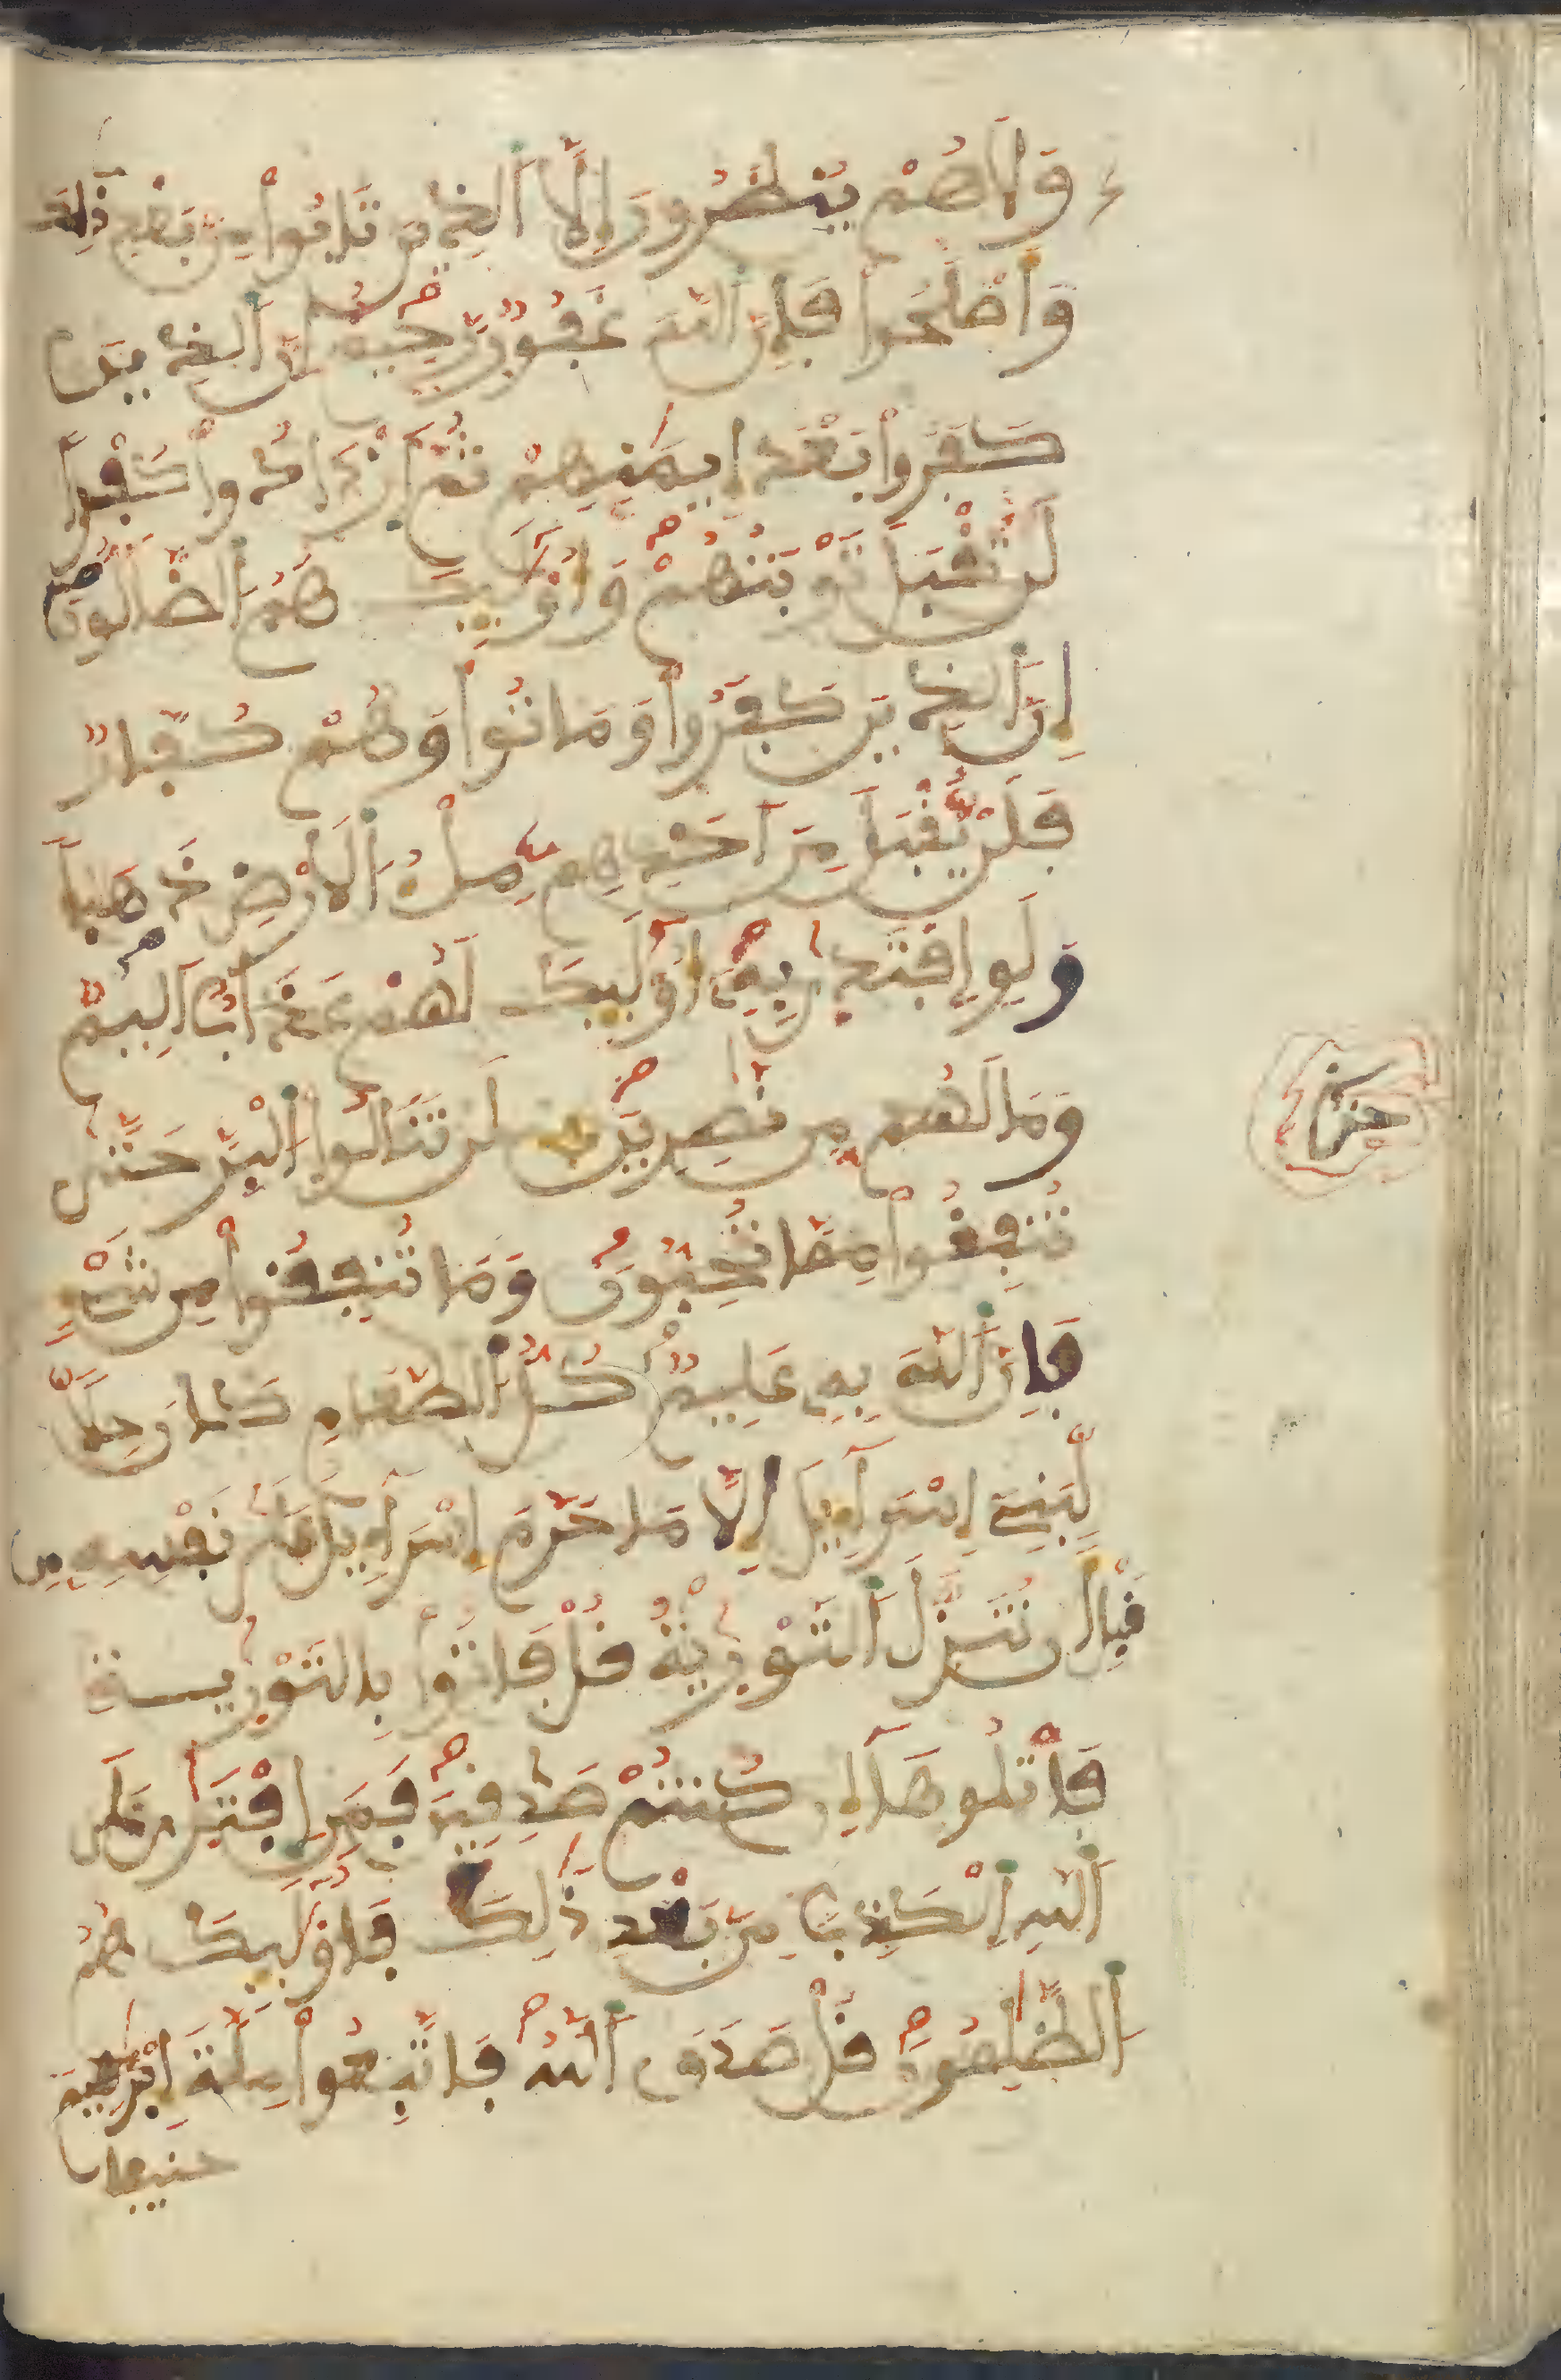 وَلَا هُمْ يُنظَرُونَ إِلَّا اَ۬لذِينَ تَابُواْ مِنۢ بَعْدِ ذَٰلِكَ
وَأَصْلَحُواْ فَإِنَّ اَ۬للَّهَ غَفُورٌ رَّحِيمٌ إِنَّ اَ۬لذِينَ
كَفَرُواْ بَعْدَ إِيمَٰنِهِمْ ثُمَّ اَ۪زْدَادُواْ كُفْراً
لَّن تُقْبَلَ تَوْبَتُهُمْ وَأُوْلَٰٓئِكَ هُمُ اُ۬لضَّآلُّونَ
إِنَّ اَ۬لذِينَ كَفَرُواْ وَمَاتُواْ وَهُمْ كُفَّارٌ
فَلَنْ يُّقْبَلَ مِنَ اَحَدِهِم مِّلْءُ اُ۬لَارْضِ ذَهَباً
وَلَوِ اِ۪فْتَد۪ىٰ بِهِۦٓ أُوْلَٰٓئِكَ لَهُمْ عَذَابٌ اَلِيمٌ
وَمَا لَهُم مِّن نَّٰصِرِينَ لَن تَنَالُواْ اُ۬لْبِرَّ حَتَّىٰ
تُنفِقُواْ مِمَّا تُحِبُّونَ وَمَا تُنفِقُواْ مِن شَےْءٍ
فَإِنَّ اَ۬للَّهَ بِهِۦ عَلِيمٌ كُلُّ اُ۬لطَّعَامِ كَانَ حِلّاً
لِّبَنِےٓ إِسْرَآءِيلَ إِلَّا مَا حَرَّمَ إِسْرَآءِيلُ عَلَىٰ نَفْسِهِۦ مِن
قَبْلِ أَن تُنَزَّلَ اَ۬لتَّوْر۪يٰةُ قُلْ فَاتُواْ بِالتَّوْر۪يٰةِ
فَاتْلُوهَآ إِن كُنتُمْ صَٰدِقِينَ فَمَنِ اِ۪فْتَر۪ىٰ عَلَى
اَ۬للَّهِ اِ۬لْكَذِبَ مِنۢ بَعْدِ ذَٰلِكَ فَأُوْلَٰٓئِكَ هُمُ
اُ۬لظَّٰلِمُونَ قُلْ صَدَقَ اَ۬للَّهُ فَاتَّبِعُواْ مِلَّةَ إِبْرَٰهِيمَ
حنيفا
حزب